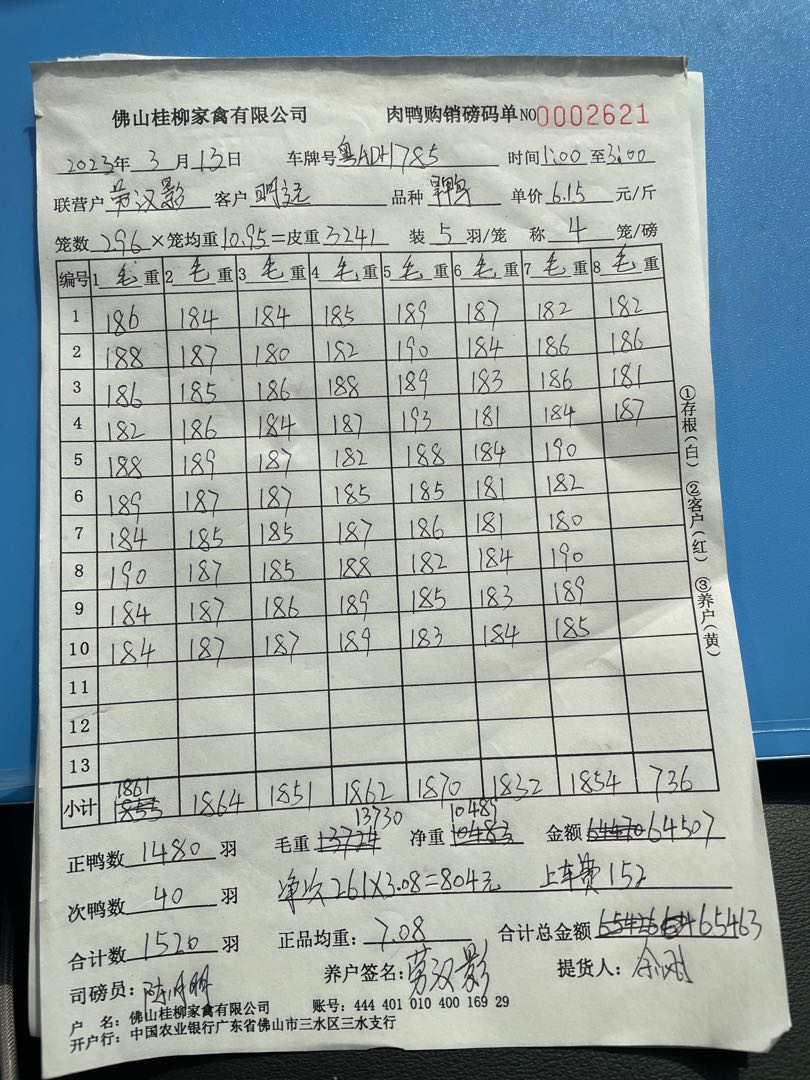 佛山桂柳家禽有限公司 肉鸭购销磅码单 NO 0002621
2023年 3 月 13 日 车牌号 粤ADH785 时间 1:00 至 3:00
联营户 劳汉影 客户 品种 单价 6.15 元/斤
笼数 296 ×笼均重 10.95 =皮重 3241 装 5 羽/笼 称 4 笼/磅
编号 1 毛 重 2 毛 重 3 毛 重 4 毛 重 5 毛 重 6 毛 重 7 毛 重 8 毛 重
1 186 184 184 185 189 187 182 182
2 188 187 180 182 190 184 186 186
3 186 185 186 188 189 183 186 181
4 182 186 184 187 193 181 184 187
5 188 189 187 182 188 184 190
6 189 187 187 185 185 181 182
7 184 185 185 187 186 181 180
8 190 187 185 188 182 184 190
9 184 187 186 189 185 183 189
10 184 187 187 189 183 184 185
11
12
13
小计 1861 1864 1851 1862 1870 1832 1854 736
正鸭数 1480 羽 毛重 13730 净重 10489 金额 64507
次鸭数 40 羽 净次 261×3.08=804元 上车费 152
合计数 1520 羽 正品均重: 7.08 合计总金额 65463
司磅员: 养户签名: 劳汉影 提货人:
户 名: 佛山桂柳家禽有限公司 账号: 444 401 010 400 169 29
开户行: 中国农业银行广东省佛山市三水区三水支行
①存根(白) ②客户(红) ③养户(黄)